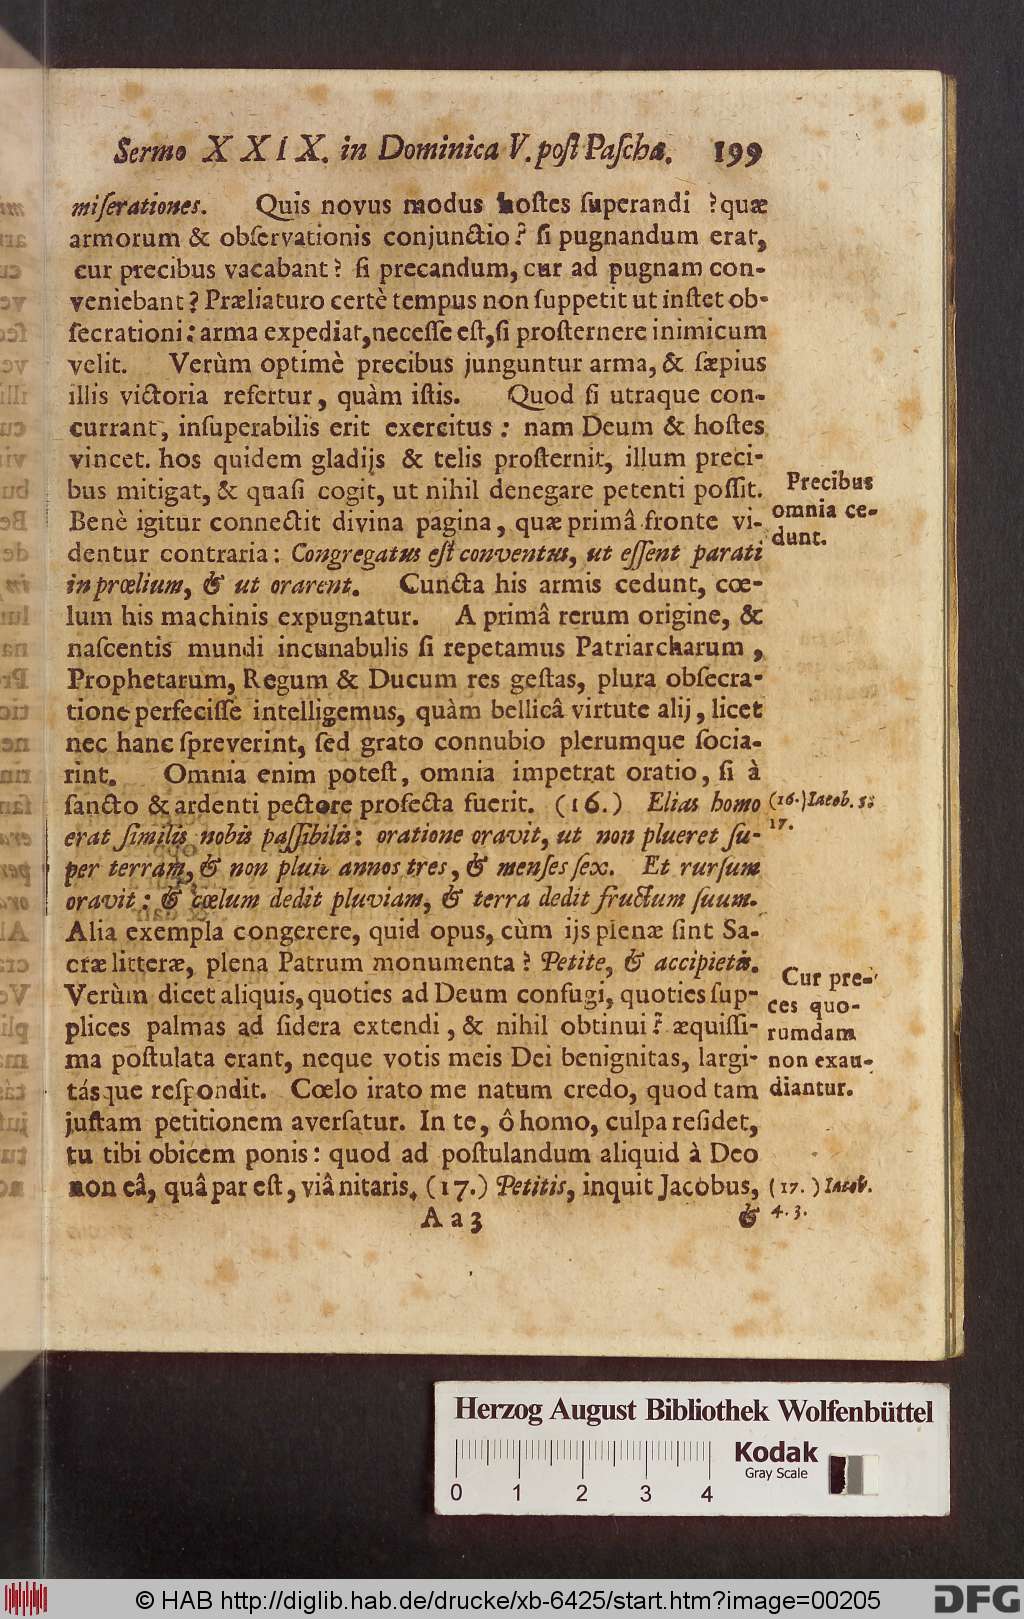 Sermo XXIX. in Dominica V. post Pascha. 199
miserationes. Quis novus modus hostes superandi ? quæ
armorum & observationis conjunctio? si pugnandum erat,
cur precibus vacabant? si precandum, cur ad pugnam con-
veniebant? Præliaturo certè tempus non suppetit ut instet ob-
secrationi: arma expediat, necesse est, si prosternere inimicum
velit. Verùm optimè precibus junguntur arma, & sæpius
illis victoria refertur, quàm istis. Quod si utraque con-
currant, insuperabilis erit exercitus: nam Deum & hostes
vincet. hos quidem gladijs & telis prosternit, illum preci-
bus mitigat, & quasi cogit, ut nihil denegare petenti possit.
Precibus
omnia ce-
dunt.
Benè igitur connectit divina pagina, quæ primâ fronte vi-
dentur contraria: Congregatus est conventus, ut essent parati
in prœlium, & ut orarent. Cuncta his armis cedunt, cœ-
lum his machinis expugnatur. A primâ rerum origine, &
nascentis mundi incunabulis si repetamus Patriarcharum,
Prophetarum, Regum & Ducum res gestas, plura obsecra-
tione perfecisse intelligemus, quàm bellicâ virtute alij, licet
nec hanc spreverint, sed grato connubio plerumque socia-
rint. Omnia enim potest, omnia impetrat oratio, si à
sancto & ardenti pectore profecta fuerit. (16.) Elias homo
(16.) Iacob. 5:
17.
erat similis nobis passibilis: oratione oravit, ut non plueret su-
per terram, & non pluit annos tres, & menses sex. Et rursum
oravit: & cœlum dedit pluviam, & terra dedit fructum suum.
Alia exempla congerere, quid opus, cùm ijs plenæ sint Sa-
cræ litteræ, plena Patrum monumenta? Petite, & accipietis.
Cur pre-
ces quo-
rumdam
non exau-
diantur.
Verùm dicet aliquis, quoties ad Deum confugi, quoties sup-
plices palmas ad sidera extendi, & nihil obtinui? æquissi-
ma postulata erant, neque votis meis Dei benignitas, largi-
tásque respondit. Cœlo irato me natum credo, quod tam
justam petitionem aversatur. In te, ô homo, culpa residet,
tu tibi obicem ponis: quod ad postulandum aliquid à Deo
non eâ, quâ par est, viâ nitaris. (17.) Petitis, inquit Jacobus,
(17.) Iacob.
4. 3.
A a 3 &
Herzog August Bibliothek Wolfenbüttel
Kodak
Gray Scale
0 1 2 3 4
© HAB http://diglib.hab.de/drucke/xb-6425/start.htm?image=00205
DFG